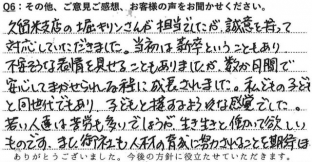 Q6：その他、ご意見ご感想、お客様の声をお聞かせください。
久留米支店の堀キリンさんが担当でしたが、誠意を持って
対応していただきました。当初は新卒ということもあり
不安そうな表情を見せることもありましたが、数か月間で
安心してまかせられる程に成長されました。私どもの子ども
と同世代でもあり、子どもと接するような感覚でした。
若い人達は苦労も多いでしょうが、生き生きと働いて欲しい
ものです。また御社も人材の育成に努力されることを期待
ありがとうございました。今後の方針に役立たせていただきます。